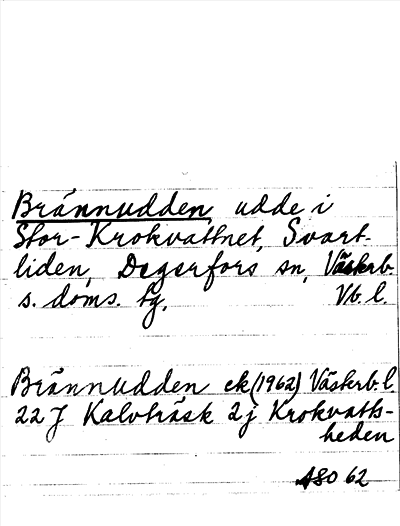 Brännudden, udde i
Stor-Krokvattnet, Svart-
liden, Degerfors sn, Västerb.
s. doms. tg, Vb. l.
Brännudden ek (1962) Västerb. l.
22 J Kalvträsk 2 j Krokvatts-
heden
ASO 62